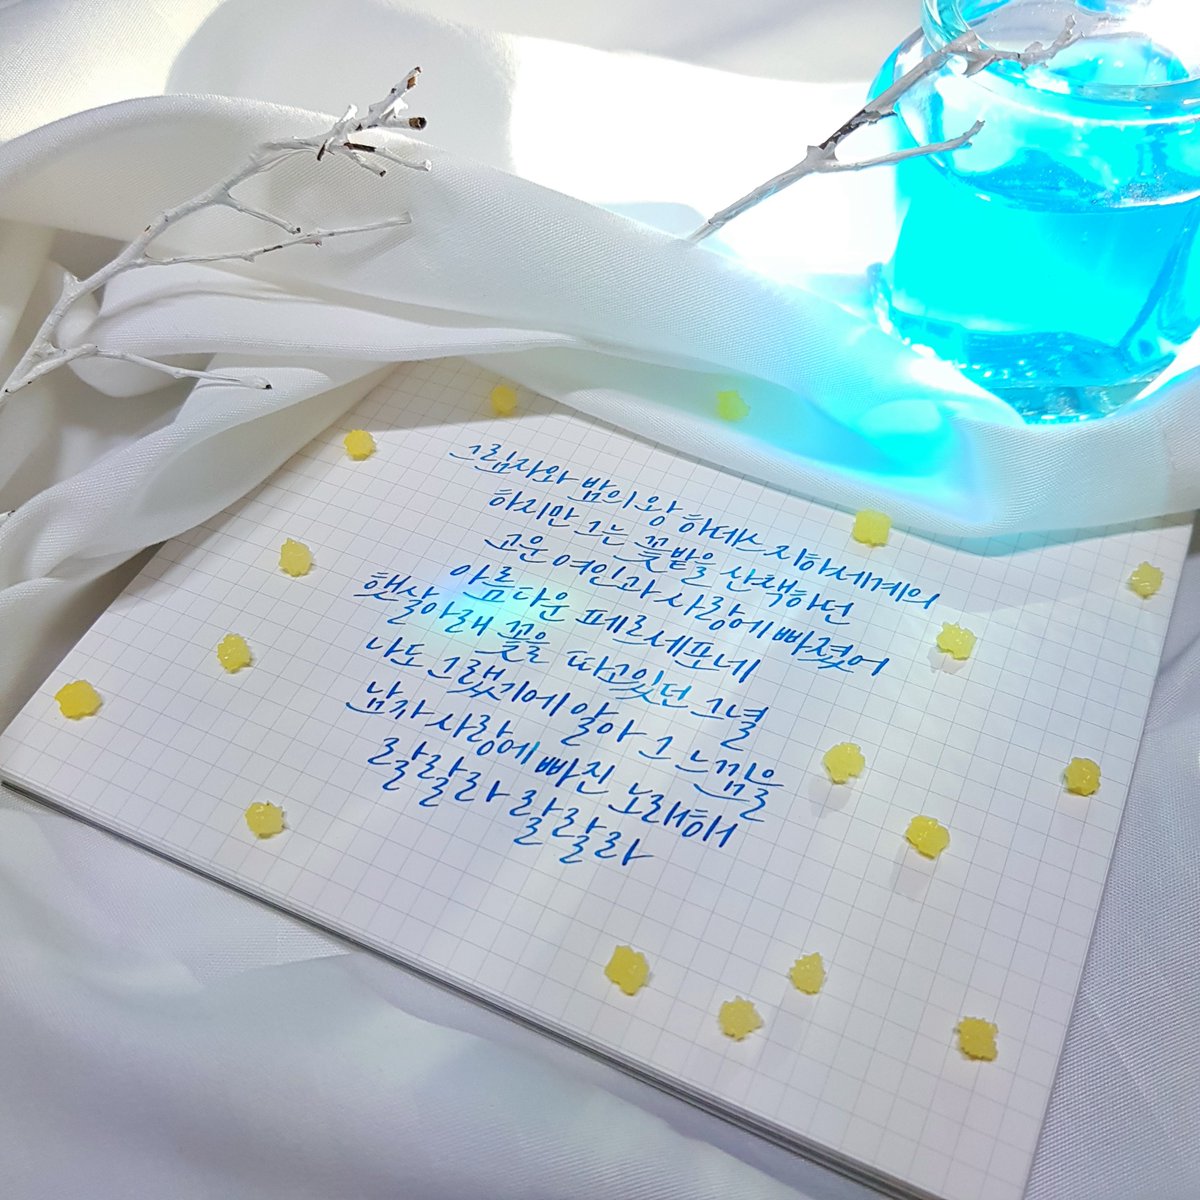 그림자와 밤의 왕 하데스 지하세계의
하지만 그는 꽃밭을 산책하던
고운 여인과 사랑에 빠졌어
아름다운 페르세포네
햇살 아래 꽃을 따고있던 그녈
나도 그랬기에 알아 그 느낌을
남자 사랑에 빠진 노래해
랄랄라 랄랄라